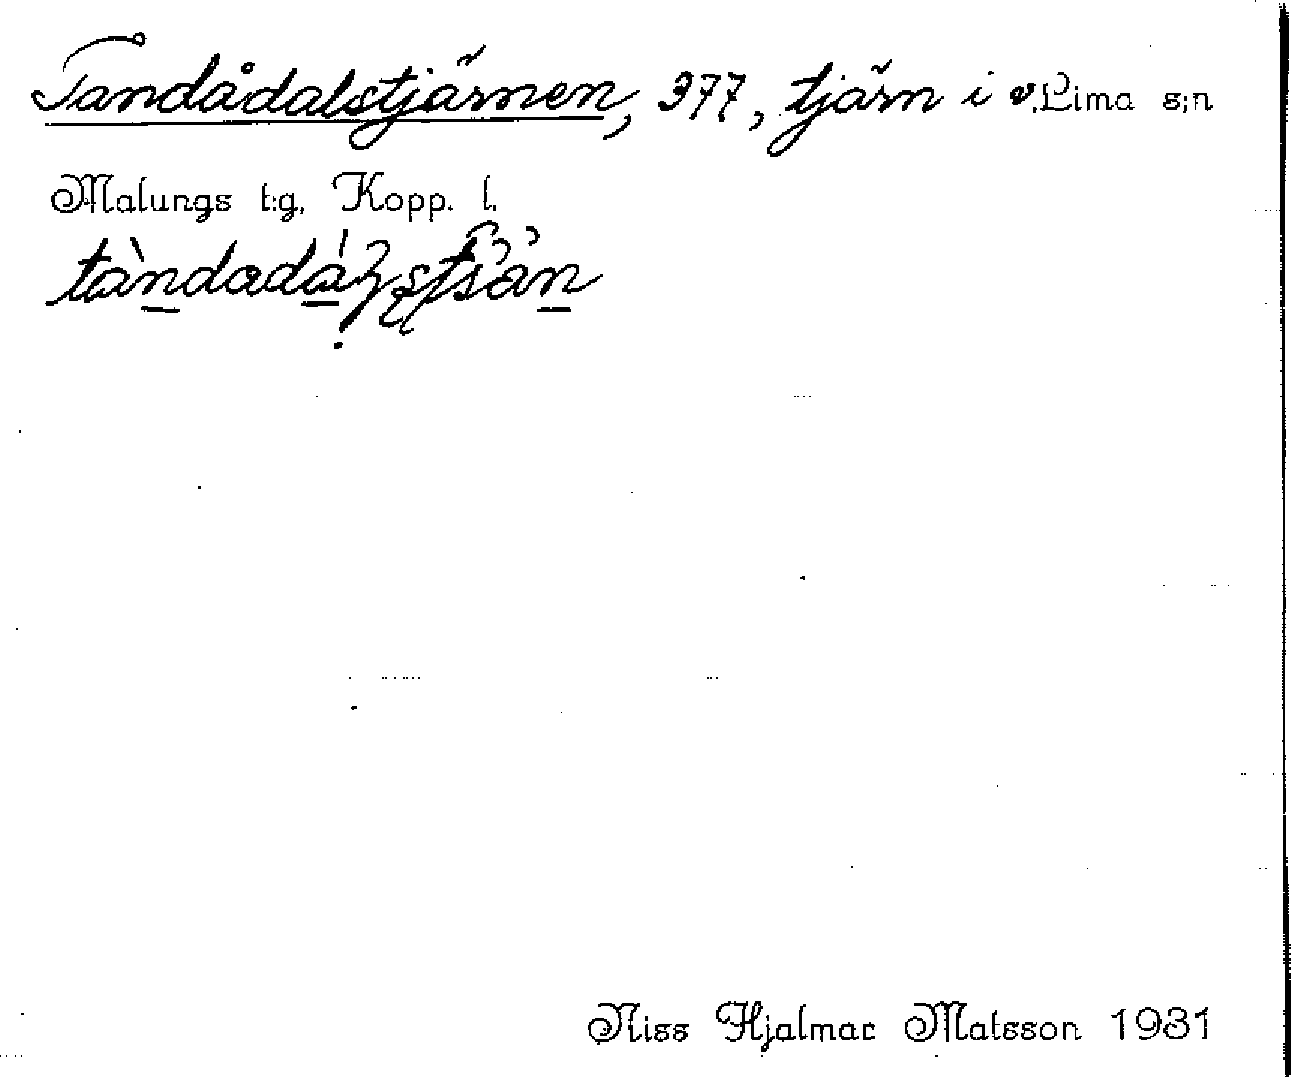 Tandådalstjärnen, 377, tjärn i v. Lima s:n
Malungs t:g, Kopp. l.
Niss Hjalmar Matsson 1931